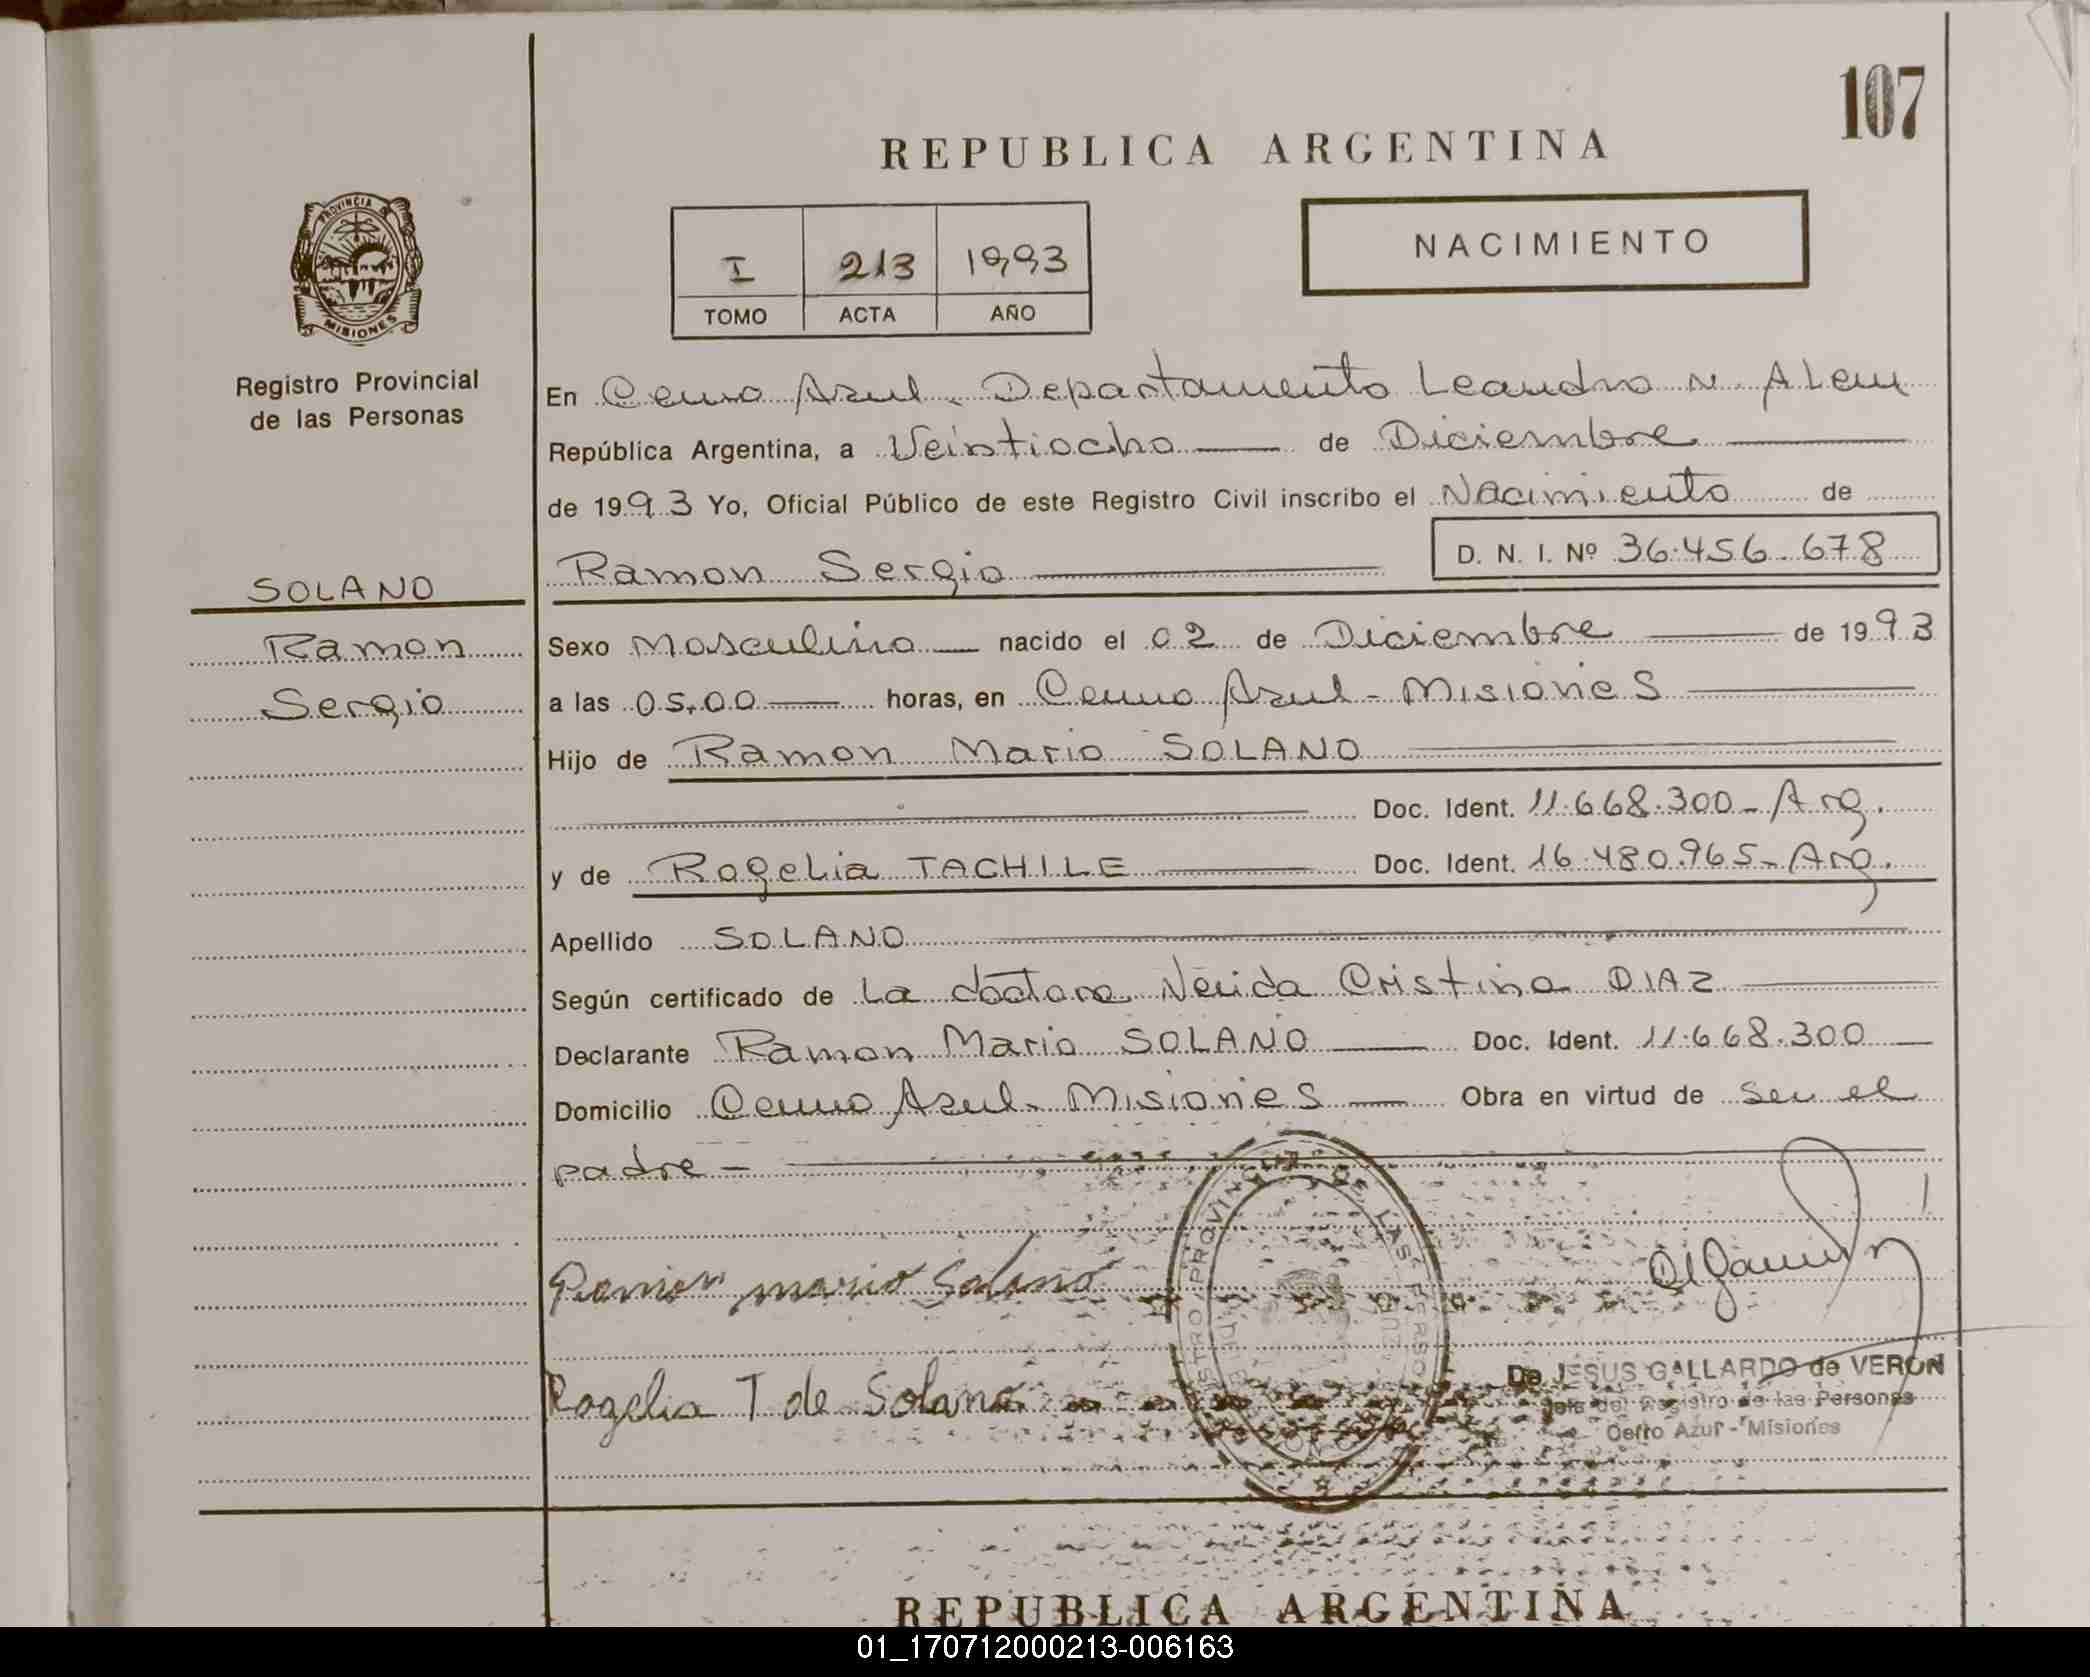 107
REPUBLICA ARGENTINA
PROVINCIA DE
MISIONES
Registro Provincial
de las Personas
I 213 1993
TOMO ACTA AÑO
NACIMIENTO
En Cerro Azul. Departamento Leandro N. Alem
República Argentina, a Veintiocho de Diciembre
de 1993 Yo, Oficial Público de este Registro Civil inscribo el Nacimiento de
Ramon Sergio D. N. I. Nº 36.456.678
SOLANO
Ramon
Sergio
Sexo Masculino nacido el 02 de Diciembre de 1993
a las 05,00 horas, en Cerro Azul - Misiones
Hijo de Ramon Mario SOLANO
Doc. Ident. 11.668.300 - Arg.
y de Rogelia TACHILE Doc. Ident. 16.480.965 - Arg.
Apellido SOLANO
Según certificado de La doctora Cristina DIAZ
Declarante Ramon Mario SOLANO Doc. Ident. 11.668.300
Domicilio Cerro Azul - Misiones Obra en virtud de ser el
padre -
Ramon mario Solano
Rogelia T de Solano
De JESUS GALLARDO de VERON
Jefe del Registro de las Personas
Cerro Azul - Misiones
REPUBLICA ARGENTINA
01_170712000213-006163